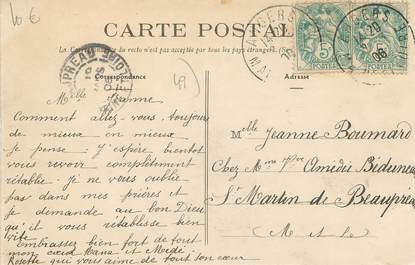 10 €
CARTE POSTALE
La Carte
recto n'est pas acceptée par tous les pays étrangers.
Correspondance
Adresse
49
Melle Jeanne
Comment allez-vous, toujours
de mieux en mieux
je pense; j'espère bientôt
vous revoir complètement
rétablie. Je ne vous oublie
pas dans mes prières et
je demande au bon Dieu
qu'il vous rétablisse bien
vite.
Embrassez bien fort de tout
mon cœur Mana et Medé
Rosette qui vous aime de tout son cœur
Melle Jeanne Boumard
Chez Mr Amédée
St Martin de Beaupreau
M et L
ANGERS
MAI
5
06
BEAUPREAU